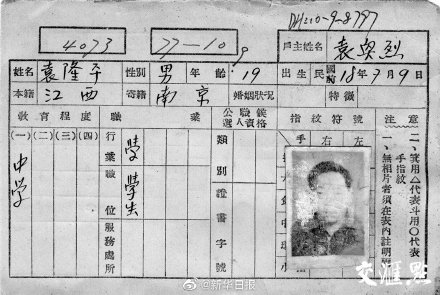 DH210-9-8797
4073
77-10
9
戶主姓名
袁興烈
姓名 袁隆平 性別 男 年齡 19 出生 民國 18年9月9日
本籍 江西 寄籍 南京 婚姻狀況 特徵
教育程度 職業 公職候選人資格 指紋符號 注意
(一) (二) (三) (四) 行業 職位 服務處所 類別 證書字號 手 右 左
中学
學
學生
一、無相片者須在表內註明
手指紋
二、箕用△代表斗用〇代表
小
@新华日报
交汇点